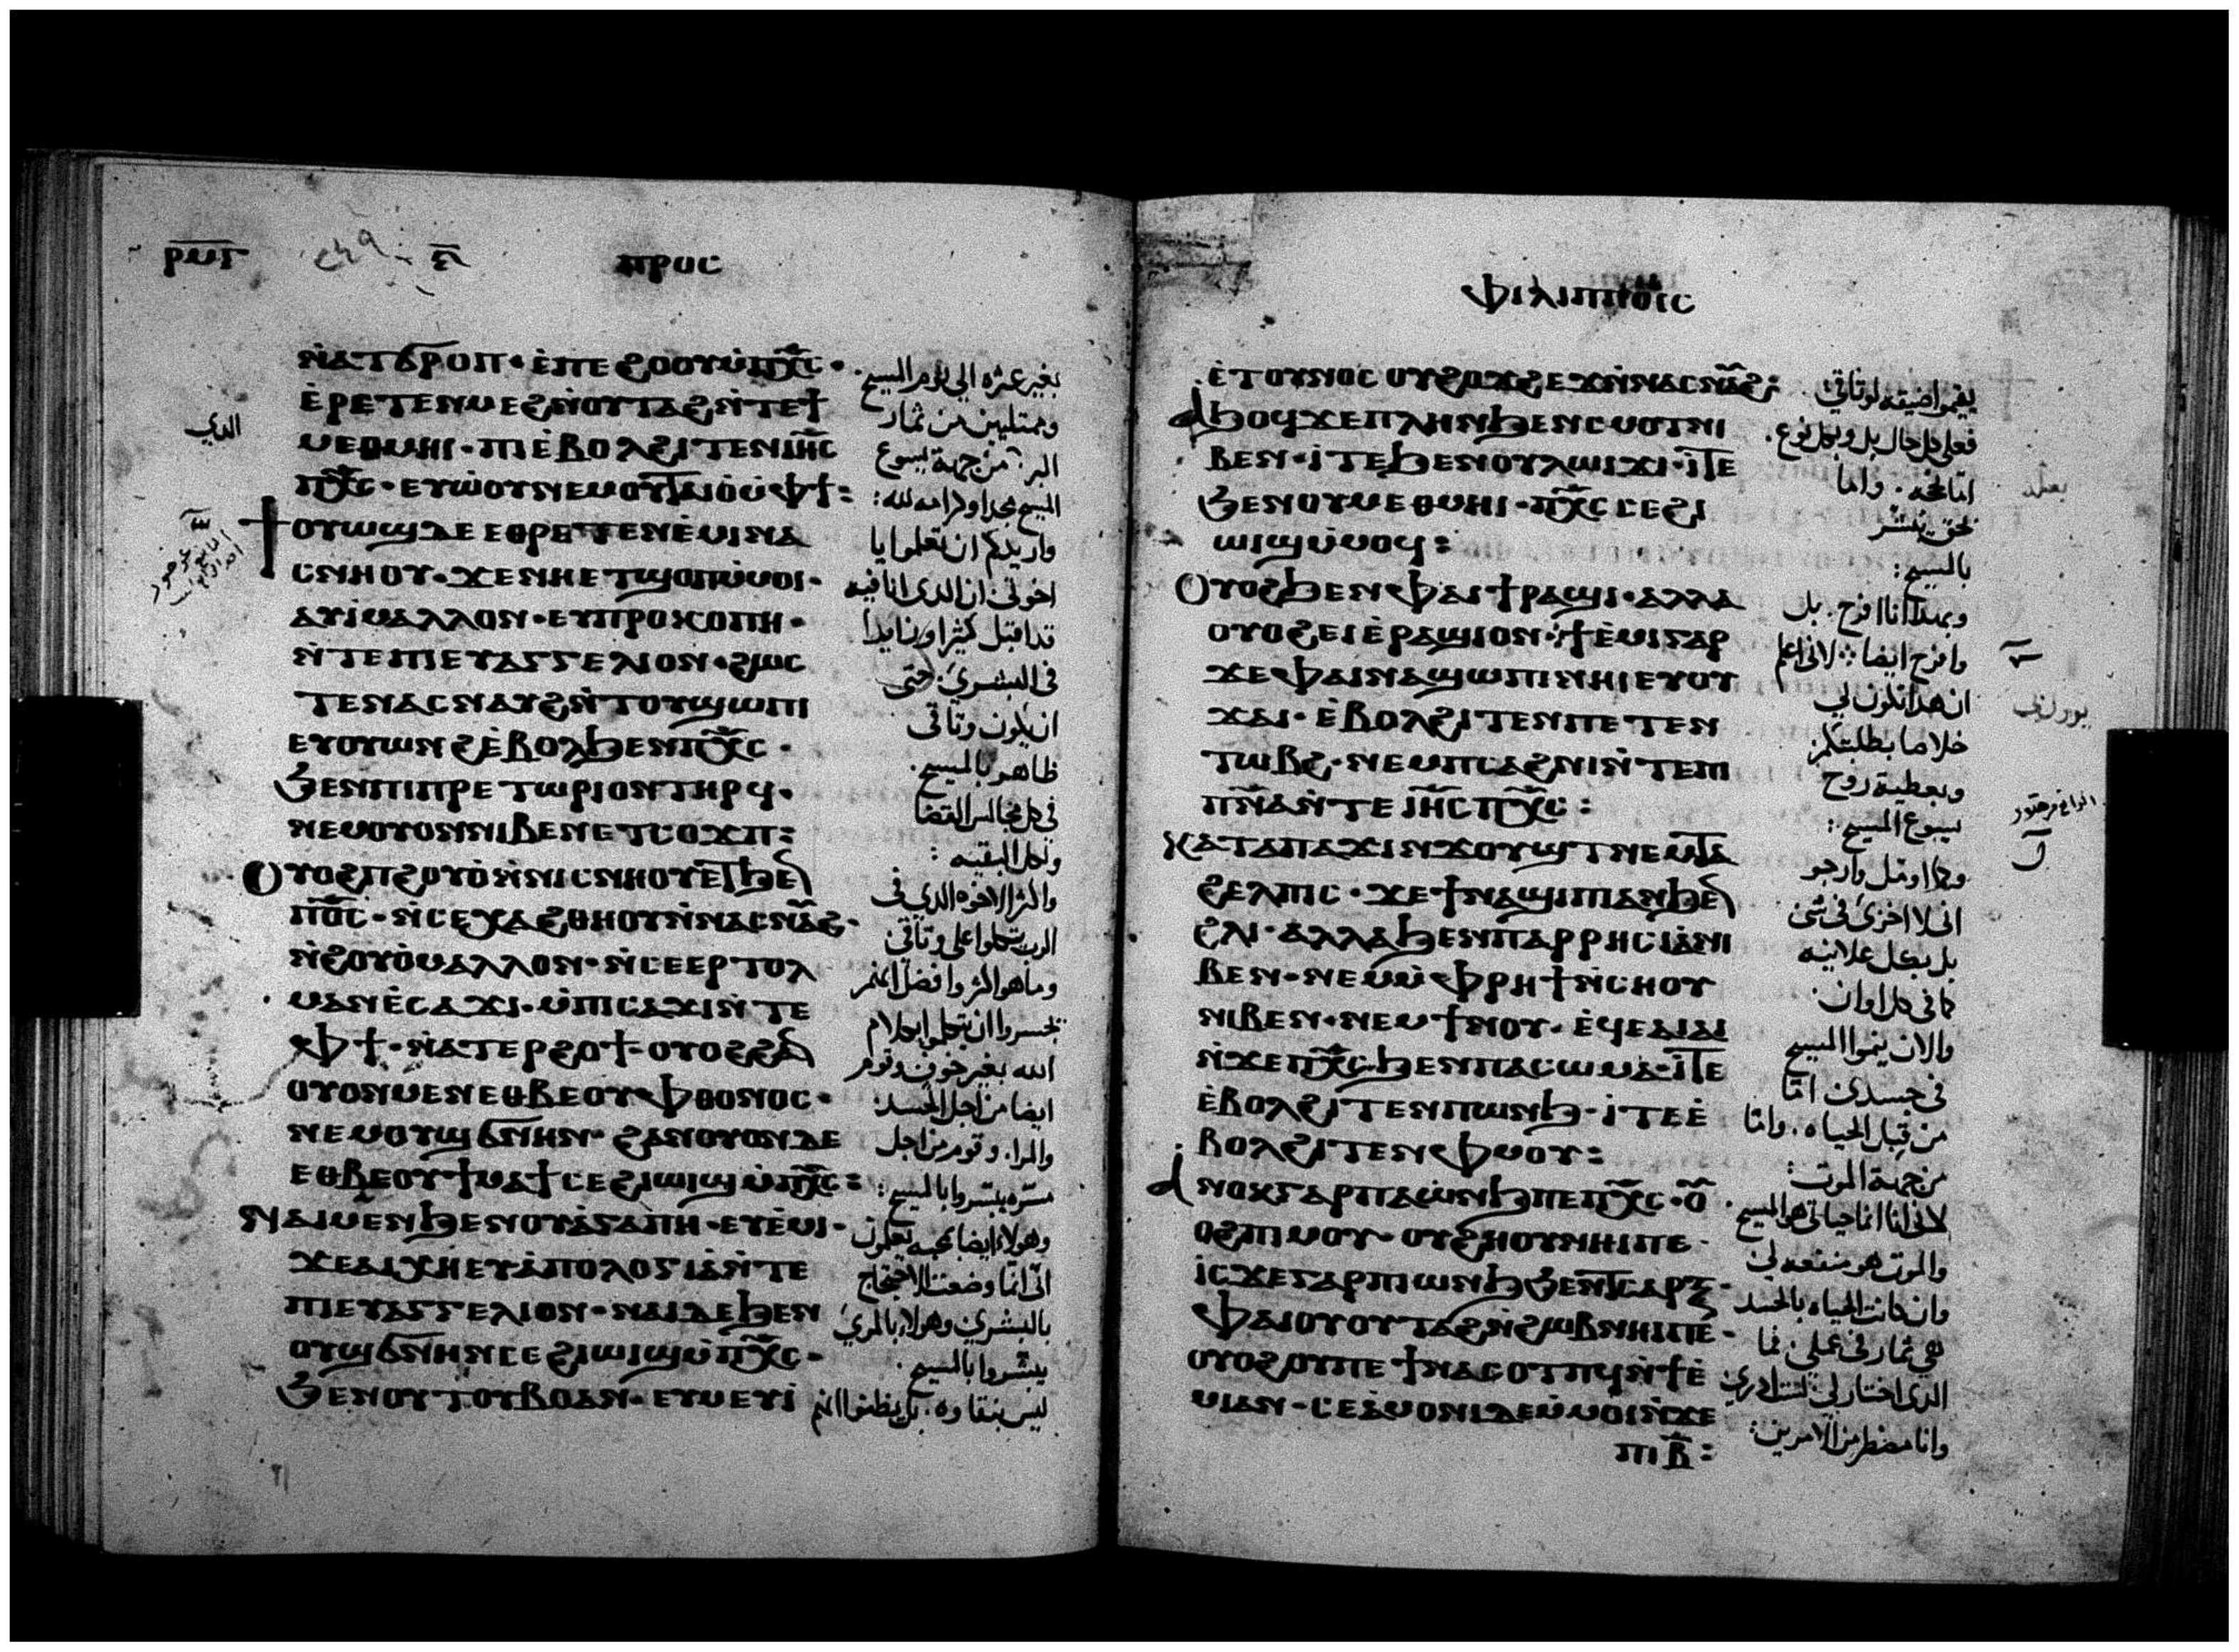 ⲡⲣⲟⲥ
ⲛ̀ⲁⲧϭⲣⲟⲡ · ⲉ̀ⲡⲉϩⲟⲟⲩⲙ̀ⲡⲭ̅ⲥ ·
ⲉ̀ⲣⲉⲧⲉⲛⲙⲉϩⲛ̀ⲟⲩⲧⲁϩⲛ̀ⲧⲉϯ
ⲙⲉⲑⲙⲏⲓ · ⲡⲓⲉ̀ⲃⲟⲗϩⲓⲧⲉⲛⲓⲏ̅ⲥ
ⲡⲭ̅ⲥ · ⲉⲩⲱ̀ⲟⲩⲛⲉⲙⲟⲩⲧⲁⲓⲟ̀ⲙ̀ⲫϯ :
ϯⲟⲩⲱϣⲇⲉ ⲉⲑⲣⲉⲧⲉⲛⲉ̀ⲙⲓⲛⲁ
ⲥⲛⲏⲟⲩ · ϫⲉⲛⲏⲉⲧϣⲟⲡⲙ̀ⲙⲟⲓ ·
ⲁⲩⲓ̀ⲙⲁⲗⲗⲟⲛ · ⲉⲩⲡⲣⲟⲕⲟⲡⲏ ·
ⲛ̀ⲧⲉⲡⲓⲉⲩⲁⲅⲅⲉⲗⲓⲟⲛ · ϩⲱⲥ
ⲧⲉⲛⲁⲥⲛⲁⲩϩⲛ̀ⲧⲟⲩϣⲱⲡⲓ
ⲉⲩⲟⲩⲱⲛϩⲉ̀ⲃⲟⲗϧⲉⲛⲡⲭ̅ⲥ ·
ϧⲉⲛⲡⲓⲡⲣⲉⲧⲱⲣⲓⲟⲛⲧⲏⲣϥ ·
ⲛⲉⲙⲟⲩⲟⲛⲛⲓⲃⲉⲛⲉⲧⲥⲟϫⲡ :
ⲟⲩⲟϩⲡϩⲟⲩⲟ̀ⲛ̀ⲛⲓⲥⲛⲏⲟⲩⲉ̀ⲧϧⲉⲛ
ⲡⲟ̅ⲥ · ⲛ̀ⲥⲉⲭⲁϩⲑⲏⲟⲩⲛ̀ⲛⲁⲥⲛⲁⲩϩ ·
ⲛ̀ϩⲟⲩⲟ̀ⲙⲁⲗⲗⲟⲛ · ⲛ̀ⲥⲉⲉⲣⲧⲟⲗ
ⲙⲁⲛⲉ̀ⲥⲁϫⲓ · ⲙ̀ⲡⲓⲥⲁϫⲓⲛ̀ⲧⲉ
ⲫϯ · ⲛ̀ⲁⲧⲉⲣϩⲟϯ · ⲟⲩⲟϩϩⲁⲛ
ⲟⲩⲟⲛⲙⲉⲛⲉⲑⲃⲉⲟⲩⲫⲑⲟⲛⲟⲥ ·
ⲛⲉⲙⲟⲩϣϭⲛⲏⲛ · ϩⲁⲛⲟⲩⲟⲛⲇⲉ
ⲉⲑⲃⲉⲟⲩϯⲙⲁϯⲥⲉϩⲓⲱⲓϣⲙ̀ⲡⲭ̅ⲥ :
ⲛⲁⲓⲙⲉⲛϧⲉⲛⲟⲩⲁ̀ⲅⲁⲡⲏ · ⲉⲩⲉ̀ⲙⲓ ·
ϫⲉⲁⲓⲭⲏⲉⲩⲁ̀ⲡⲟⲗⲟⲅⲓⲁ̀ⲛ̀ⲧⲉ
ⲡⲓⲉⲩⲁⲅⲅⲉⲗⲓⲟⲛ · ⲛⲁⲓⲇⲉϧⲉⲛ
ⲟⲩϣϭⲛⲏⲛⲥⲉϩⲓⲱⲓϣⲙ̀ⲡⲭ̅ⲥ ·
ϧⲉⲛⲟⲩⲧⲟⲩⲃⲟⲁⲛ · ⲉⲩⲙⲉⲩⲓ̀
الدي
بغير عثره الي يوم المسيح
وممتليين من ثمار
البر · من جهة يسوع
المسيح مجدا وكرامه لله :
واريدكم ان تعلموا يا
اخوتي ان الدي انا فيه
قد اقبل كثيرا وزايدا
في البشري · حتي
ان يكون وثاقي
ظاهر بالمسيح ·
في كل مجالس القضا
ولكل البقيه :
واكثر الاخوه الدي في
الرب يتكلوا علي وثاقي
وما هو اكثر وافضل انهم
تجسروا ان يتكلموا بكلام
الله بغير خوف وقوم
ايضا من اجل الحسد
والمرا · وقوم من اجل
مسره يبشروا بالمسيح :
وهولاء ايضا بمحبه تعلمون
اني انما وضعت للاحتجاج
بالبشري وهولاء بالمري
يبشروا بالمسيح ·
ليس بنقاوه · بل يظنوا انهم
ⲫⲓⲗⲓⲡⲡⲟⲓⲥ
ⲉ̀ⲧⲟⲩⲛⲟⲥ ⲟⲩϩⲟϫϩⲉϫⲛ̀ⲛⲁⲥⲛⲁⲩϩ :
ⲁϧⲟϥϫⲉⲡⲗⲏⲛϧⲉⲛⲥⲙⲟⲧⲛⲓ
ⲃⲉⲛ · ⲓ̀ⲧⲉϧⲉⲛⲟⲩⲗⲱⲓϫⲓ · ⲓ̀ⲧⲉ
ϧⲉⲛⲟⲩⲙⲉⲑⲙⲏⲓ · ⲡⲭ̅ⲥ ⲥⲉϩⲓ
ⲱⲓϣⲙ̀ⲙⲟϥ :
ⲟⲩⲟϩϧⲉⲛⲫⲁⲓϯⲣⲁϣⲓ · ⲁⲗⲗⲁ
ⲟⲩⲟϩⲉⲓⲉ̀ⲣⲁϣⲓⲟⲛ · ϯⲉ̀ⲙⲓⲅⲁⲣ
ϫⲉⲫⲁⲓⲛⲁϣⲱⲡⲓⲛⲏⲓⲉⲩⲟⲩ
ϫⲁⲓ · ⲉ̀ⲃⲟⲗϩⲓⲧⲉⲛⲡⲉⲧⲉⲛ
ⲧⲱⲃϩ · ⲛⲉⲙⲡⲥⲁϩⲛⲓⲛ̀ⲧⲉⲡⲓ
ⲡⲛ̅ⲁⲛ̀ⲧⲉ ⲓⲏ̅ⲥⲡⲭ̅ⲥ :
ⲕⲁⲧⲁⲡⲁϫⲓⲛϫⲟⲩϣⲧⲛⲉⲙⲧⲁ
ϩⲉⲗⲡⲓⲥ · ϫⲉϯⲛⲁϣⲓⲡⲓⲁⲛϧⲉⲛ
ϩⲗⲓ · ⲁⲗⲗⲁϧⲉⲛⲡⲁⲣⲣⲏⲥⲓⲁ̀ⲛⲓ
ⲃⲉⲛ · ⲛⲉⲙⲙ̀ⲫⲣⲏϯⲛ̀ⲥⲏⲟⲩ
ⲛⲓⲃⲉⲛ · ⲛⲉⲙϯⲛⲟⲩ · ⲉ̀ϥⲉⲁⲓⲁⲓ
ⲛ̀ϫⲉⲡⲭ̅ⲥϧⲉⲛⲡⲁⲥⲱⲙⲁ · ⲓ̀ⲧⲉ
ⲉ̀ⲃⲟⲗϩⲓⲧⲉⲛⲡⲱⲛϧ · ⲓ̀ⲧⲉⲉ̀
ⲃⲟⲗϩⲓⲧⲉⲛⲫⲙⲟⲩ :
ⲁⲛⲟⲕⲅⲁⲣⲡⲁⲱ̀ⲛϧⲡⲉⲡⲭ̅ⲥ · ⲟⲩ
ⲟϩⲡⲓⲙⲟⲩ · ⲟⲩϩⲏⲟⲩⲛⲏⲓⲡⲉ ·
ⲓⲥϫⲉⲅⲁⲣⲡⲓⲱⲛϧϧⲉⲛⲧⲥⲁⲣⲝ ·
ⲫⲁⲓⲟⲩⲟⲩⲧⲁϩⲛ̀ϩⲱⲃⲛⲏⲓⲡⲉ ·
ⲟⲩⲟϩⲟⲩⲡⲉϯⲛⲁⲥⲟⲧⲡϥⲛ̀ϯⲉ̀
ⲙⲓⲁⲛ · ⲥⲉⲁ̀ⲙⲟⲛⲓⲇⲉⲙ̀ⲙⲟⲓⲛ̀ϫⲉ
ⲡⲓⲃ̅ :
يقيموا ضيقه لوثاقي
فعلي كل حال بل وبكل نوع ·
اما بحجه · واما
بحق يبشر
بالمسيح :
وبهدا انا افرح · بل
وافرح ايضا لاني اعلم
ان هدا تكون لي
خلاصا بطلبتكم
وبعطية روح
يسوع المسيح :
وكما اومل وارجو
اني لا اخزي في شي
بل بكل علانيه
كما في كل اوان ·
والان ينموا المسيح
في جسدي اما
من قبل الحياه · واما
من جهة الموت :
لاني انا انما حياتي هو المسيح
والموت هو منفعه لي
وان كانت الحياه بالجسد
فهي ثمار في عملي · فما
الدي اختار لي لست ادري
وانا مضطر من الامرين :